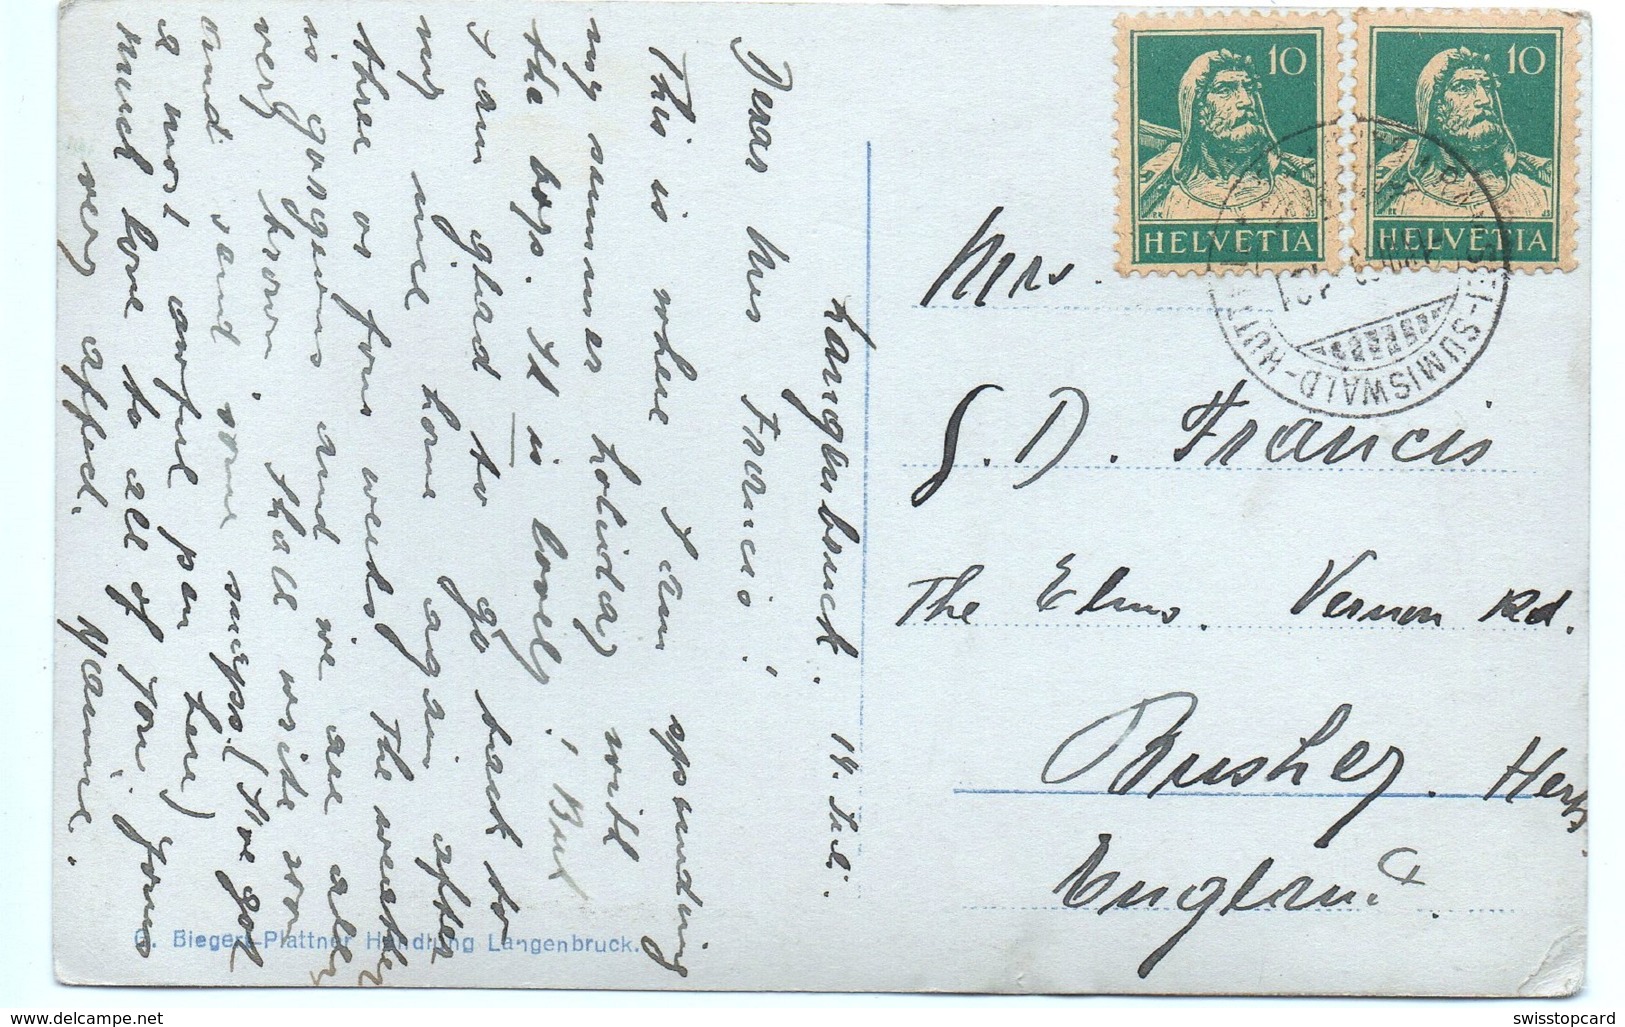 Langenbruck. 14. Juli.
Dear Mrs Francis!
This is where I am spending
my summer holiday with
the boys. It is lovely! But
I am glad to go back to
my nice home again after
three or four weeks. The weather
is gorgeous and we are all
very brown. I shall write soon
and send some snaps. (I've got
a most awful pen here)
much love to all of you. yours
very affect. Yanne.
Mrs.
S. D. Francis
The Elms. Vernon Rd.
Bushey. Herts.
England.
10
HELVETIA
10
HELVETIA
SUMISWALD-HUT
G. Biegert-Plattner Handlung Langenbruck.
www.delcampe.net
swisstopcard